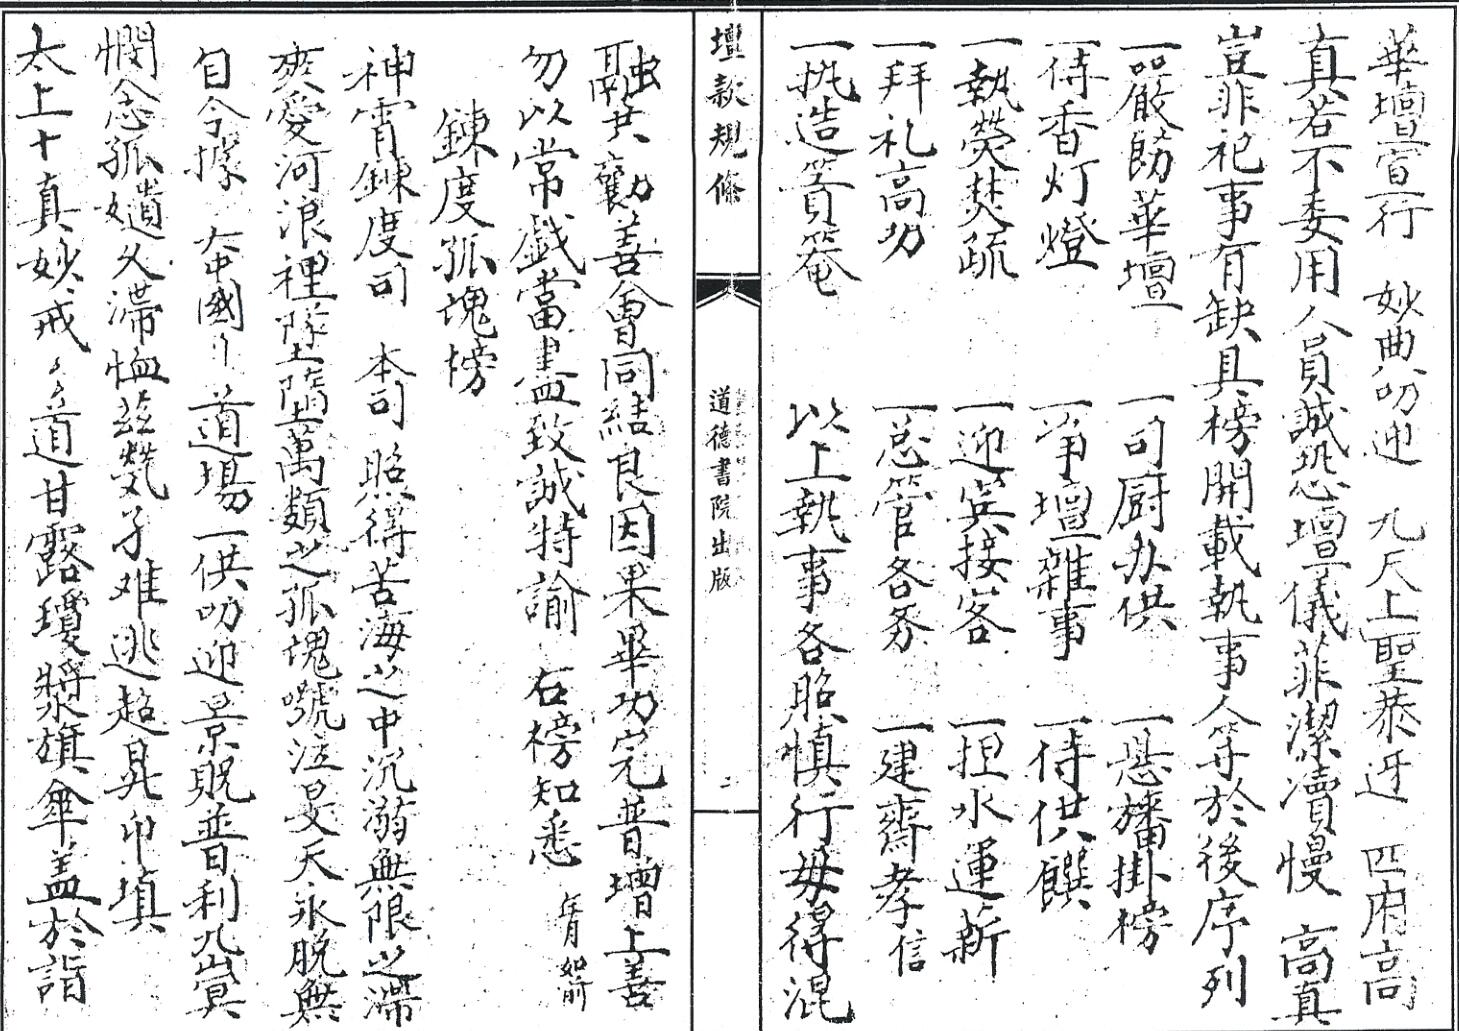 華壇宣行 妙典叨迎 九天上聖恭迓 四府高
真若不委用人員誠恐壇儀菲潔瀆慢 高真
豈非祀事有缺具榜開載執事人等於後序列
一嚴飭華壇 一司廚办供 一懸旛掛榜
一侍香灯燈 一爭壇雜事 一侍供饌
一執熒焚疏 一迎宾接客 一担水運薪
一拜礼高功 一总管各务 一建齋孝信
一挑造筲菴 以上執事各照慎行毋得混
壇款規條
道德書院出版
二
融共勸善會同結良因果畢功完普增上善
勿以常戲當盡致誠特諭 右榜知悉 年月如前
錬度孤魂榜
神霄錬度司 本司 照得苦海之中沉溺無限之滯
爽愛河浪裡隊上隋上萬類之孤魂號泣旻天永脫無
自今據 大中國 道場一供叨迎景貺普利九冥
憫念孤 久滯恤茲煢孑难逃超昇 填
太上十真妙戒 道甘露瓊漿旗傘盖於詣